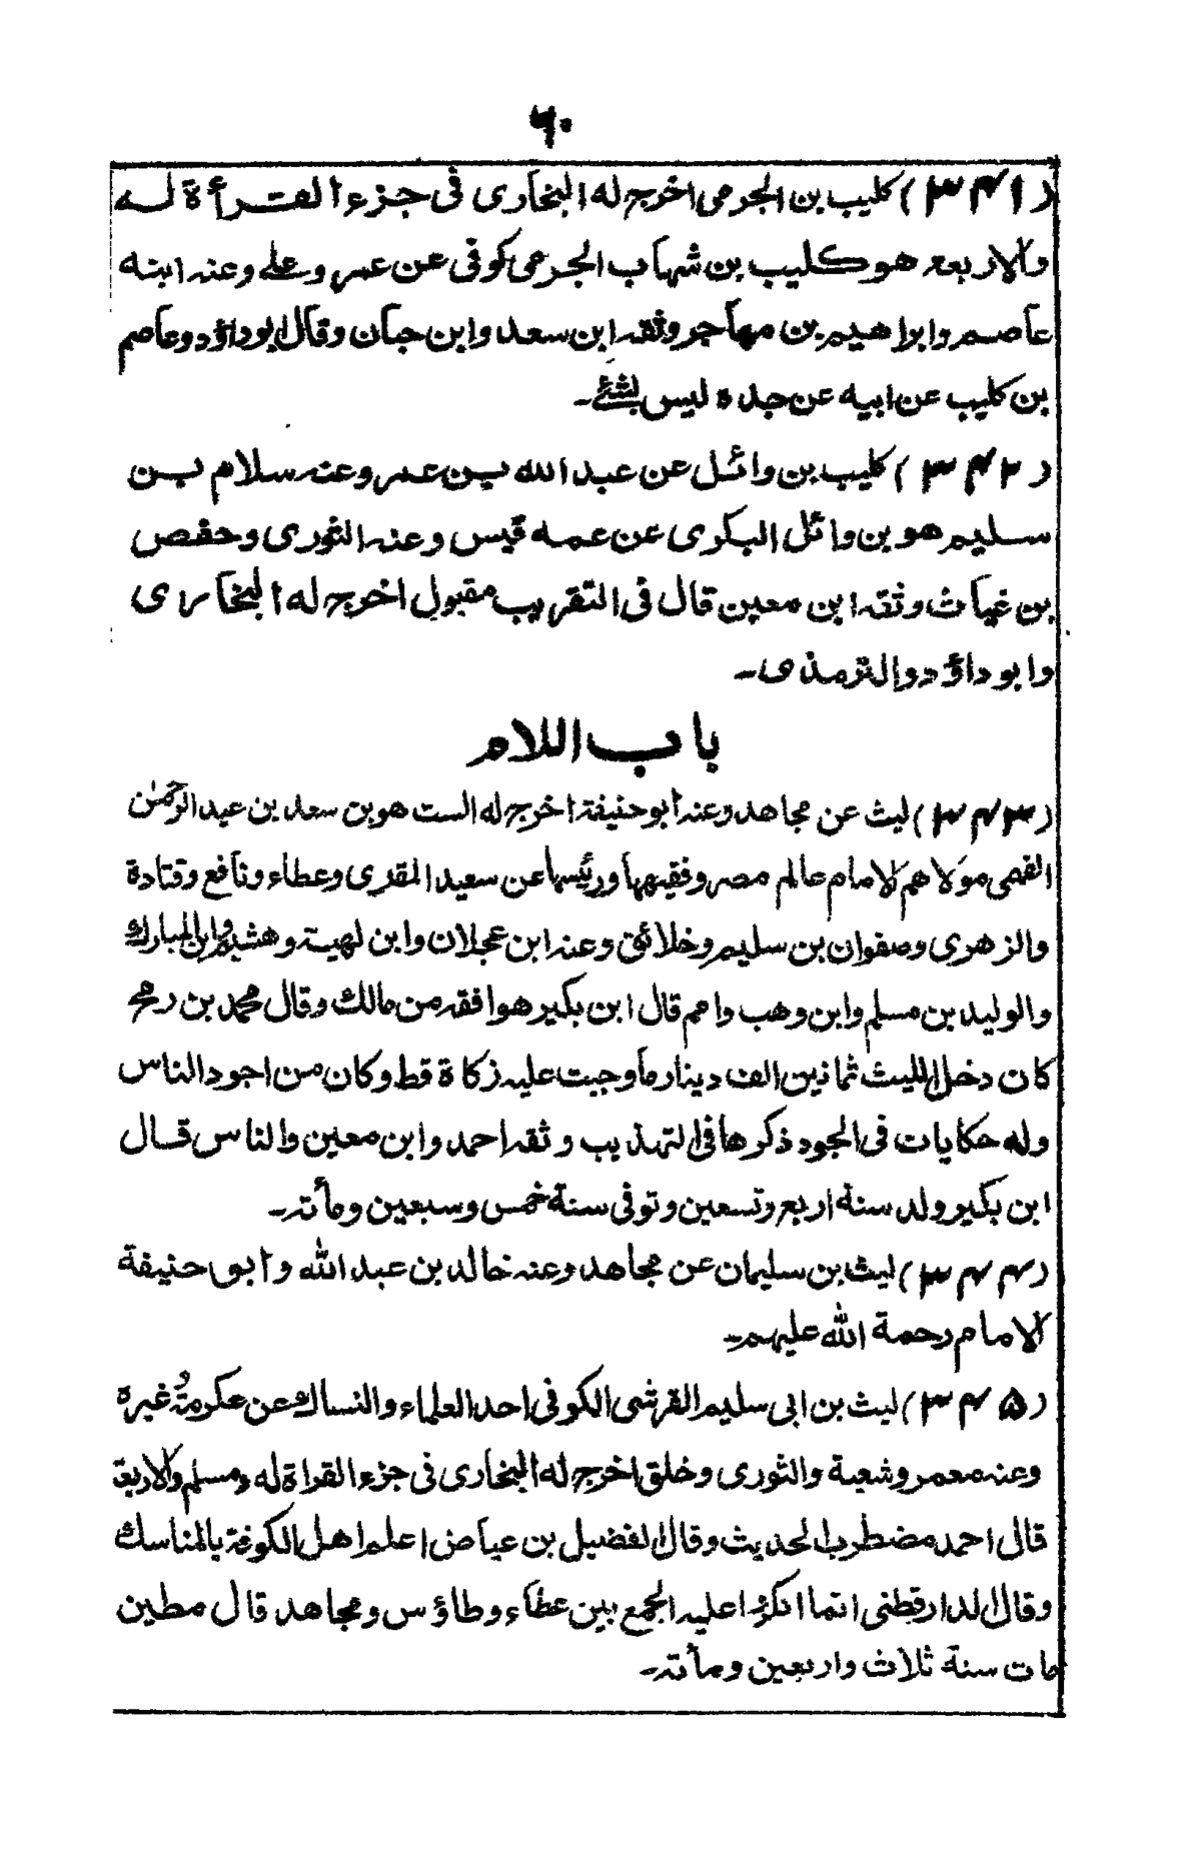 ٦٠
(٣٤١) كليب بن الجرمی اخرج له البخاری فی جزء القرأة له
والاربعه هو كليب بن شهاب الجرمی كوفی عن عمر وعلے وعنه ابنه
عاصم وابراهيم بن مهاجر وثقه ابن سعد وابن حبان وقال ابوداؤد وعاصم
بن كليب عن ابيه عن جده ليس بشئے۔
(٣٤٢) كليب بن وائل عن عبد الله بن عمر وعنه سلام بن
سليم هو بن وائل البكری عن عمه قيس وعنه الثوری وحفص
بن غياث وثقه ابن معين قال فی التقريب مقبول اخرج له البخاری
وابو داؤد والترمذی۔
باب اللام
(٣٤٣) ليث عن مجاهد وعنه ابو حنيفة اخرج له الست هو بن سعد بن عبد الرحمٰن
الفهمی مولاهم الامام عالم مصر وفقيهها ورئيسها عن سعيد المقبری وعطاء ونافع وقتادة
والزهری وصفوان بن سليم وخلائق وعنه ابن عجلان وابن لهيعة وهشيم وابن المبارك
والوليد بن مسلم وابن وهب وامم قال ابن بكير هو افقه من مالك وقال محمد بن رمح
كان دخل الليث ثمانين الف دينار ما وجبت عليه زكاة قط وكان من اجود الناس
وله حكايات فی الجود ذكرها فی التهذيب وثقه احمد وابن معين والناس قال
ابن بكير ولد سنة اربع وتسعين وتوفی سنة خمس وسبعين ومأته۔
(٣٤٤) ليث بن سليمان عن مجاهد وعنه خالد بن عبد الله وابو حنيفة
الامام رحمة الله عليهم۔
(٣٤٥) ليث بن ابی سليم القرشی الكوفی احد العلماء والنساك عن عكرمة وغيره
وعنه معمر وشعبة والثوری وخلق اخرج له البخاری فی جزء القراة له ومسلم والاربعة
قال احمد مضطرب الحديث وقال الفضيل بن عياض اعلم اهل الكوفة بالمناسك
وقال الدارقطنی انما انكروا عليه الجمع بين عطاء وطاؤس ومجاهد قال مطين
مات سنة ثلاث واربعين ومأته۔